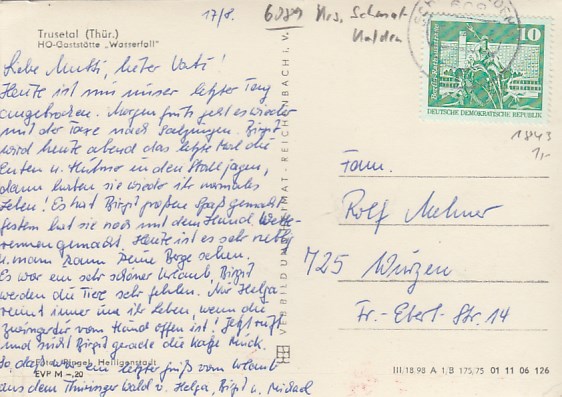 17/8.
6089 Krs. Schmal-
kalden
Trusetal (Thür.)
HO-Gaststätte „Wasserfall"
Liebe Mutti, lieber Vati!
Heute ist nun unser letzter Tag
angebrochen. Morgen früh geht es wieder
mit der Taxe nach Salzungen. Birgit
wird heute abend das letzte Mal die
Enten u. Hühner in den Stall jagen,
dann haben sie wieder ihr normales
Leben. Es hat Birgit großen Spaß gemacht
gestern hat sie noch mit dem Hund Wett-
rennen gemacht. Heute ist es sehr neblig
u. man kann keine Berge sehen.
Es war ein sehr schöner Urlaub, Birgit
werden die Tiere sehr fehlen. Nur Helga
weint immer um ihr Leben, wenn die
Zwingertür vom Hund offen ist! Jetzt ruft
und sucht Birgit gerade die Katze Muck.
So, das war ein letzter Gruß vom Urlaub
aus dem Thüringer Wald v. Helga, Birgit u. Michael
Heiligenstadt
EVP M –,20
VERBILDUNG HEIMAT REICHENBACH I. V.
10
DEUTSCHE DEMOKRATISCHE REPUBLIK
1843
1,-
Fam.
Rolf Mehner
725 Wurzen
Fr.-Ebert-Str. 14
III/18.98 A 1/B 175/75 01 11 06 126